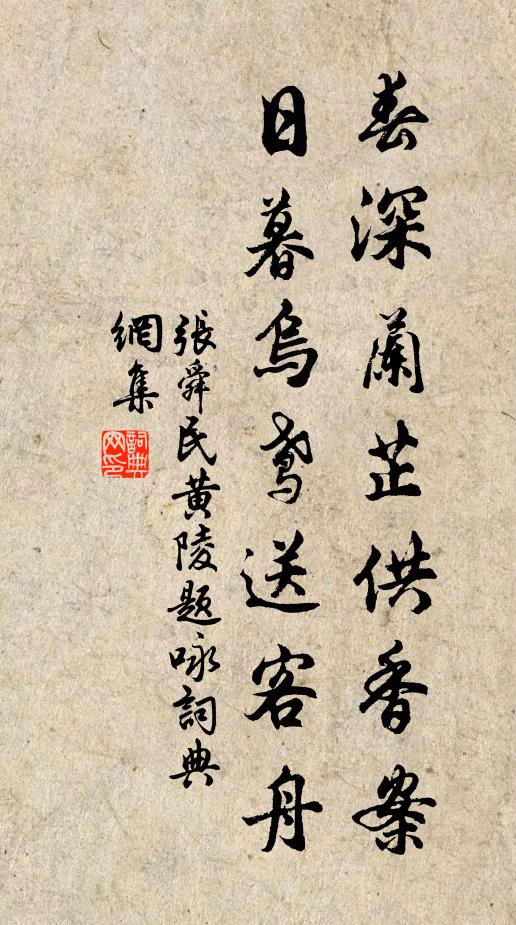 春深蘭芷供香案
日暮烏鳶送客舟
張舜民黄陵題咏詞典
網集
詞典
网印